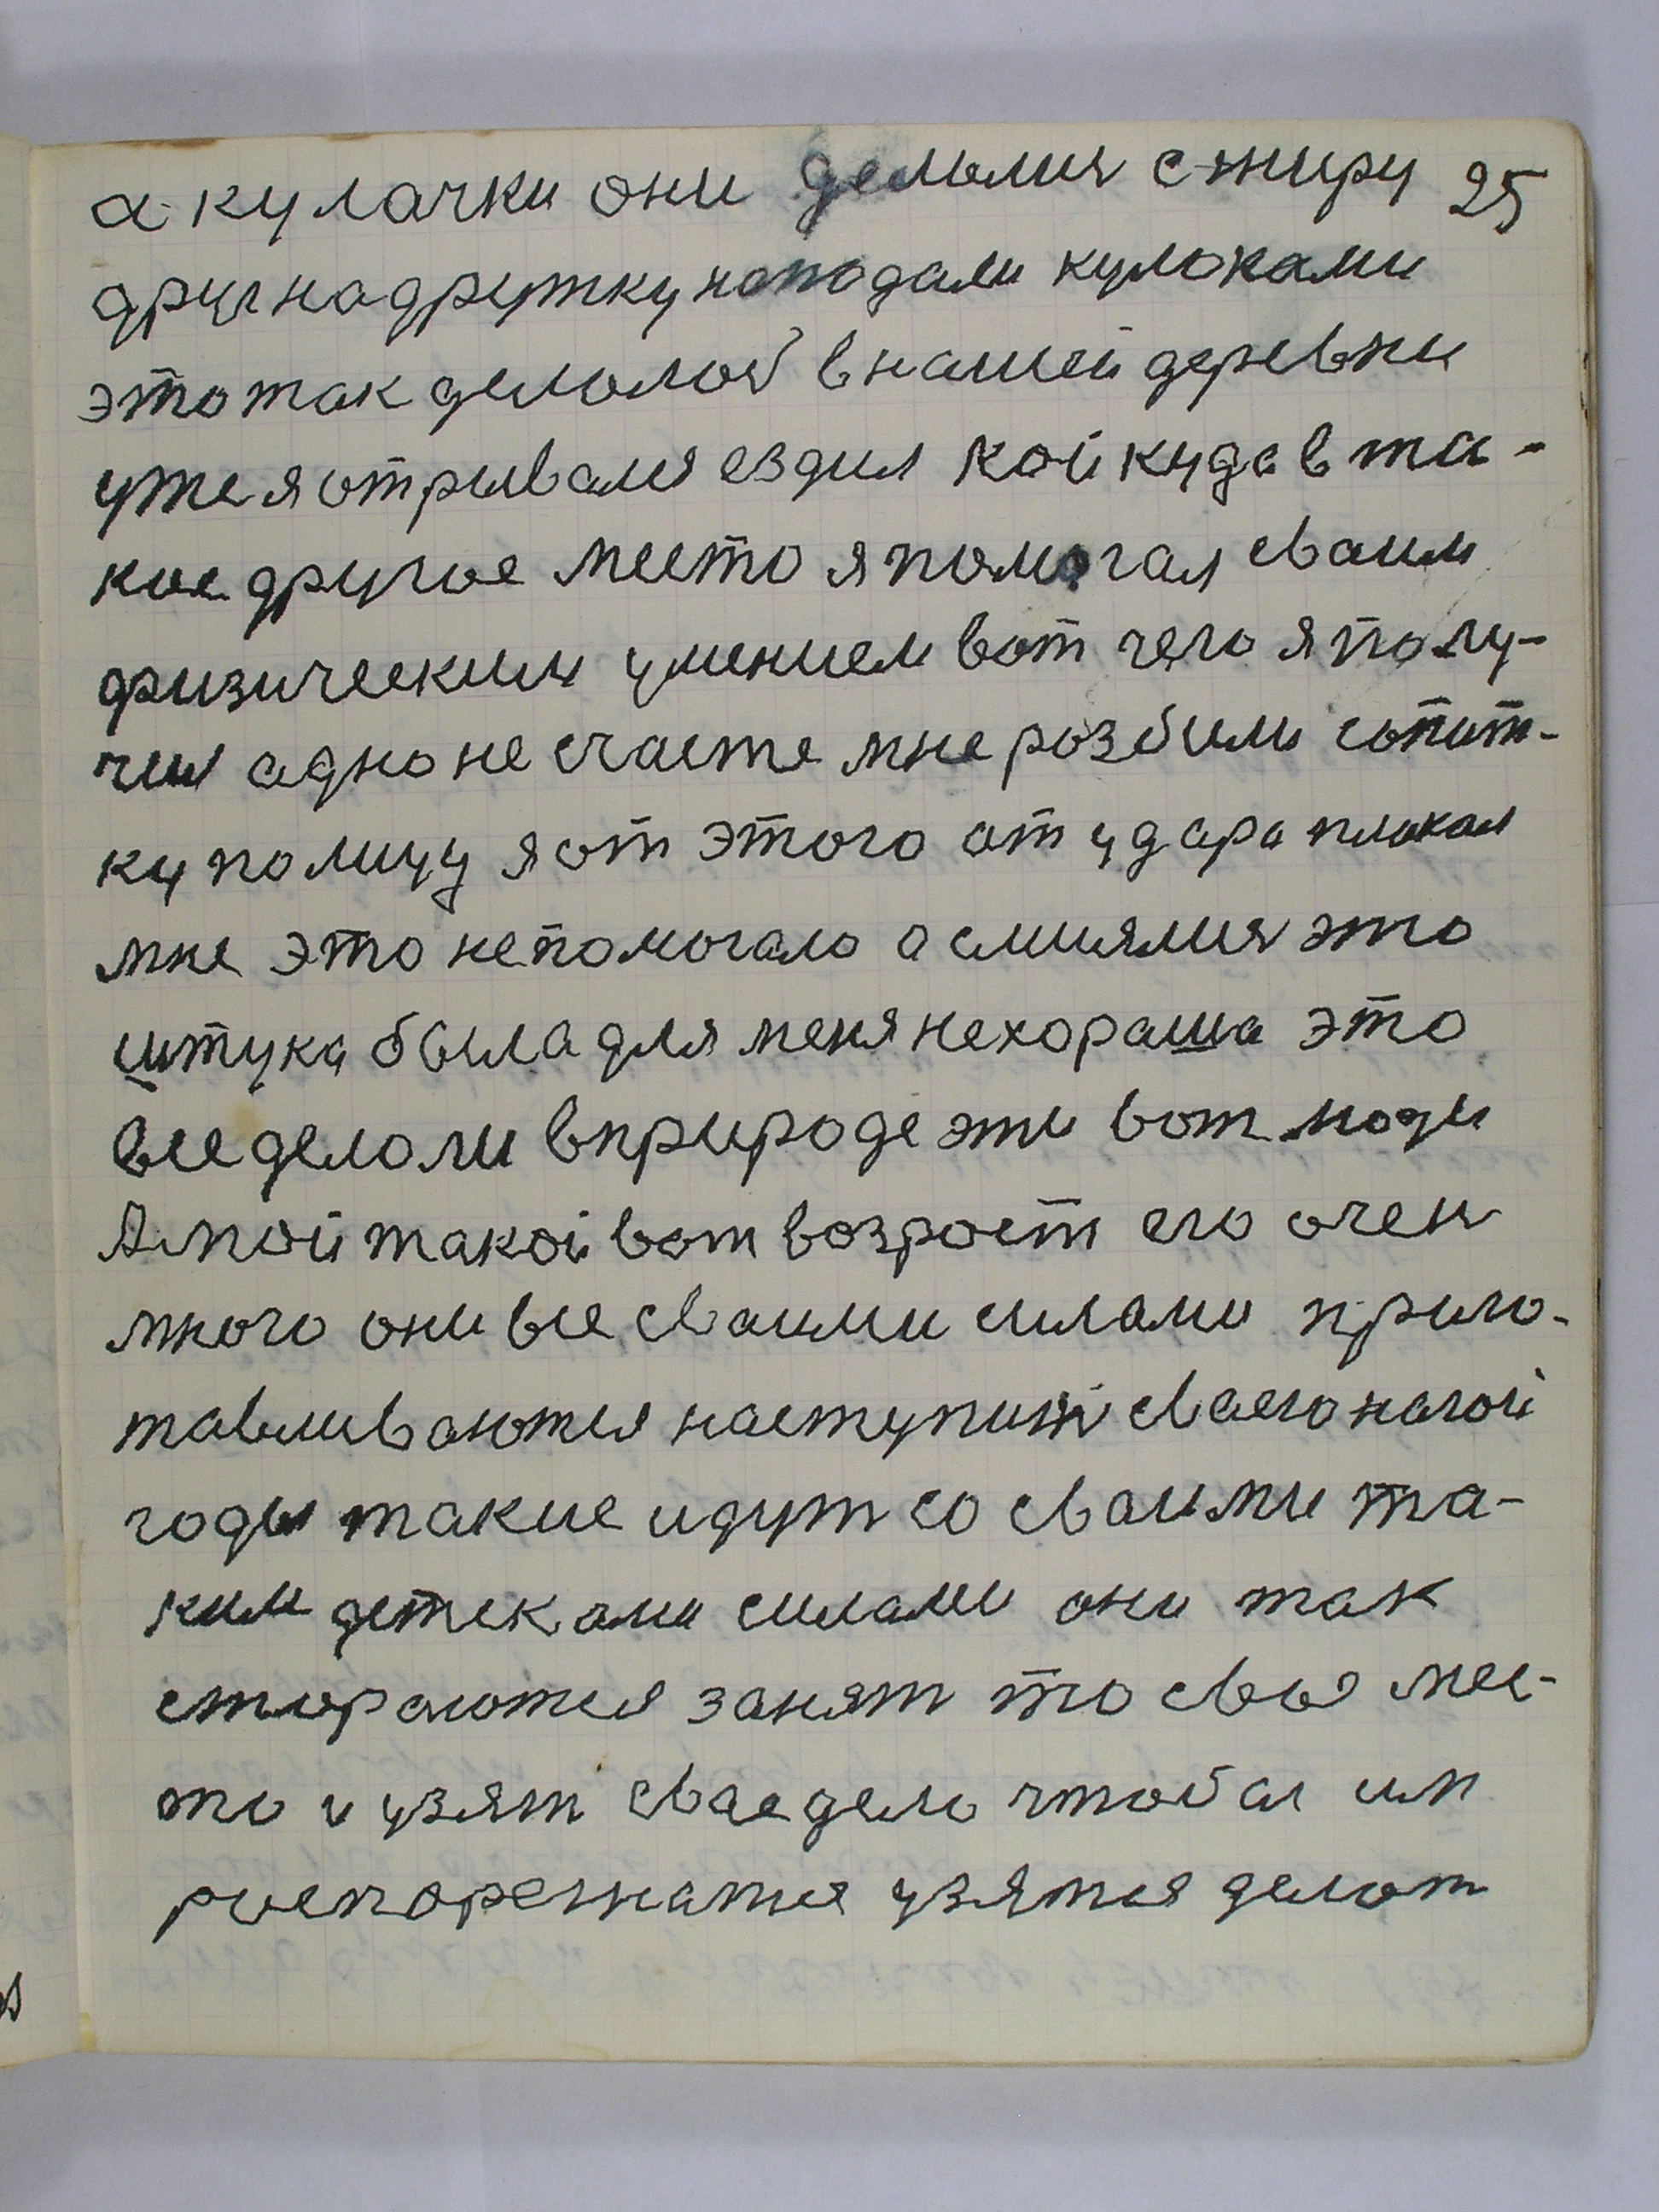 а кулачки они делалися с жиру 25
друг на дружку нападали кулоками
это так делолось в нашей деревни
уже я отрывался ездил кой куда в та-
кое другое место я помогал сваим
физическим умением вот чего я полу-
чил адно несчастя мне розбили сопит-
ку по лицу я от этого от удара плакал
мне это непомогало а смиялися это
штука была для меня нехораша это
все делоли в природе эти вот люди
А мой такой вот возрост его очен
много они все сваими силами приго-
тавливаются наступит сваего нагой
годы такие идут со сваими та-
ким детсками силами они так
стораются занят то свое мес-
то и узят свае дело чтобы им
роспорежатся узятся делат